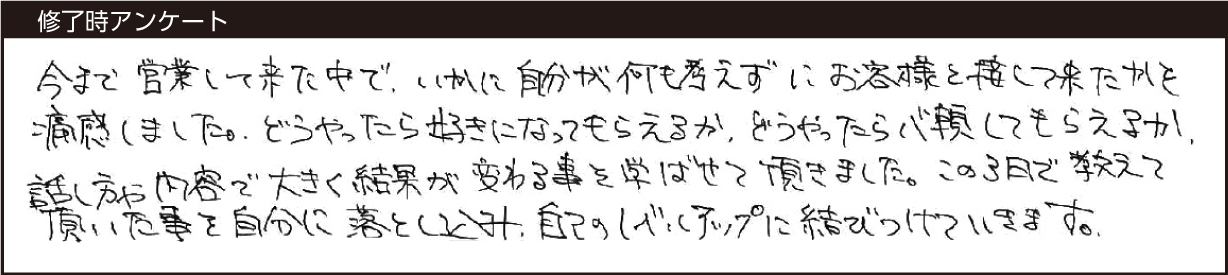 修了時アンケート
今まで営業して来た中で、いかに自分が何も考えずにお客様と接して来たかを
痛感しました。どうやったら好きになってもらえるか、どうやったら信頼してもらえるか、
話し方や内容で大きく結果が変わる事を学ばせて頂きました。この3日で教えて
頂いた事を自分に落とし込み、自己のレベルアップに結びつけていきます。